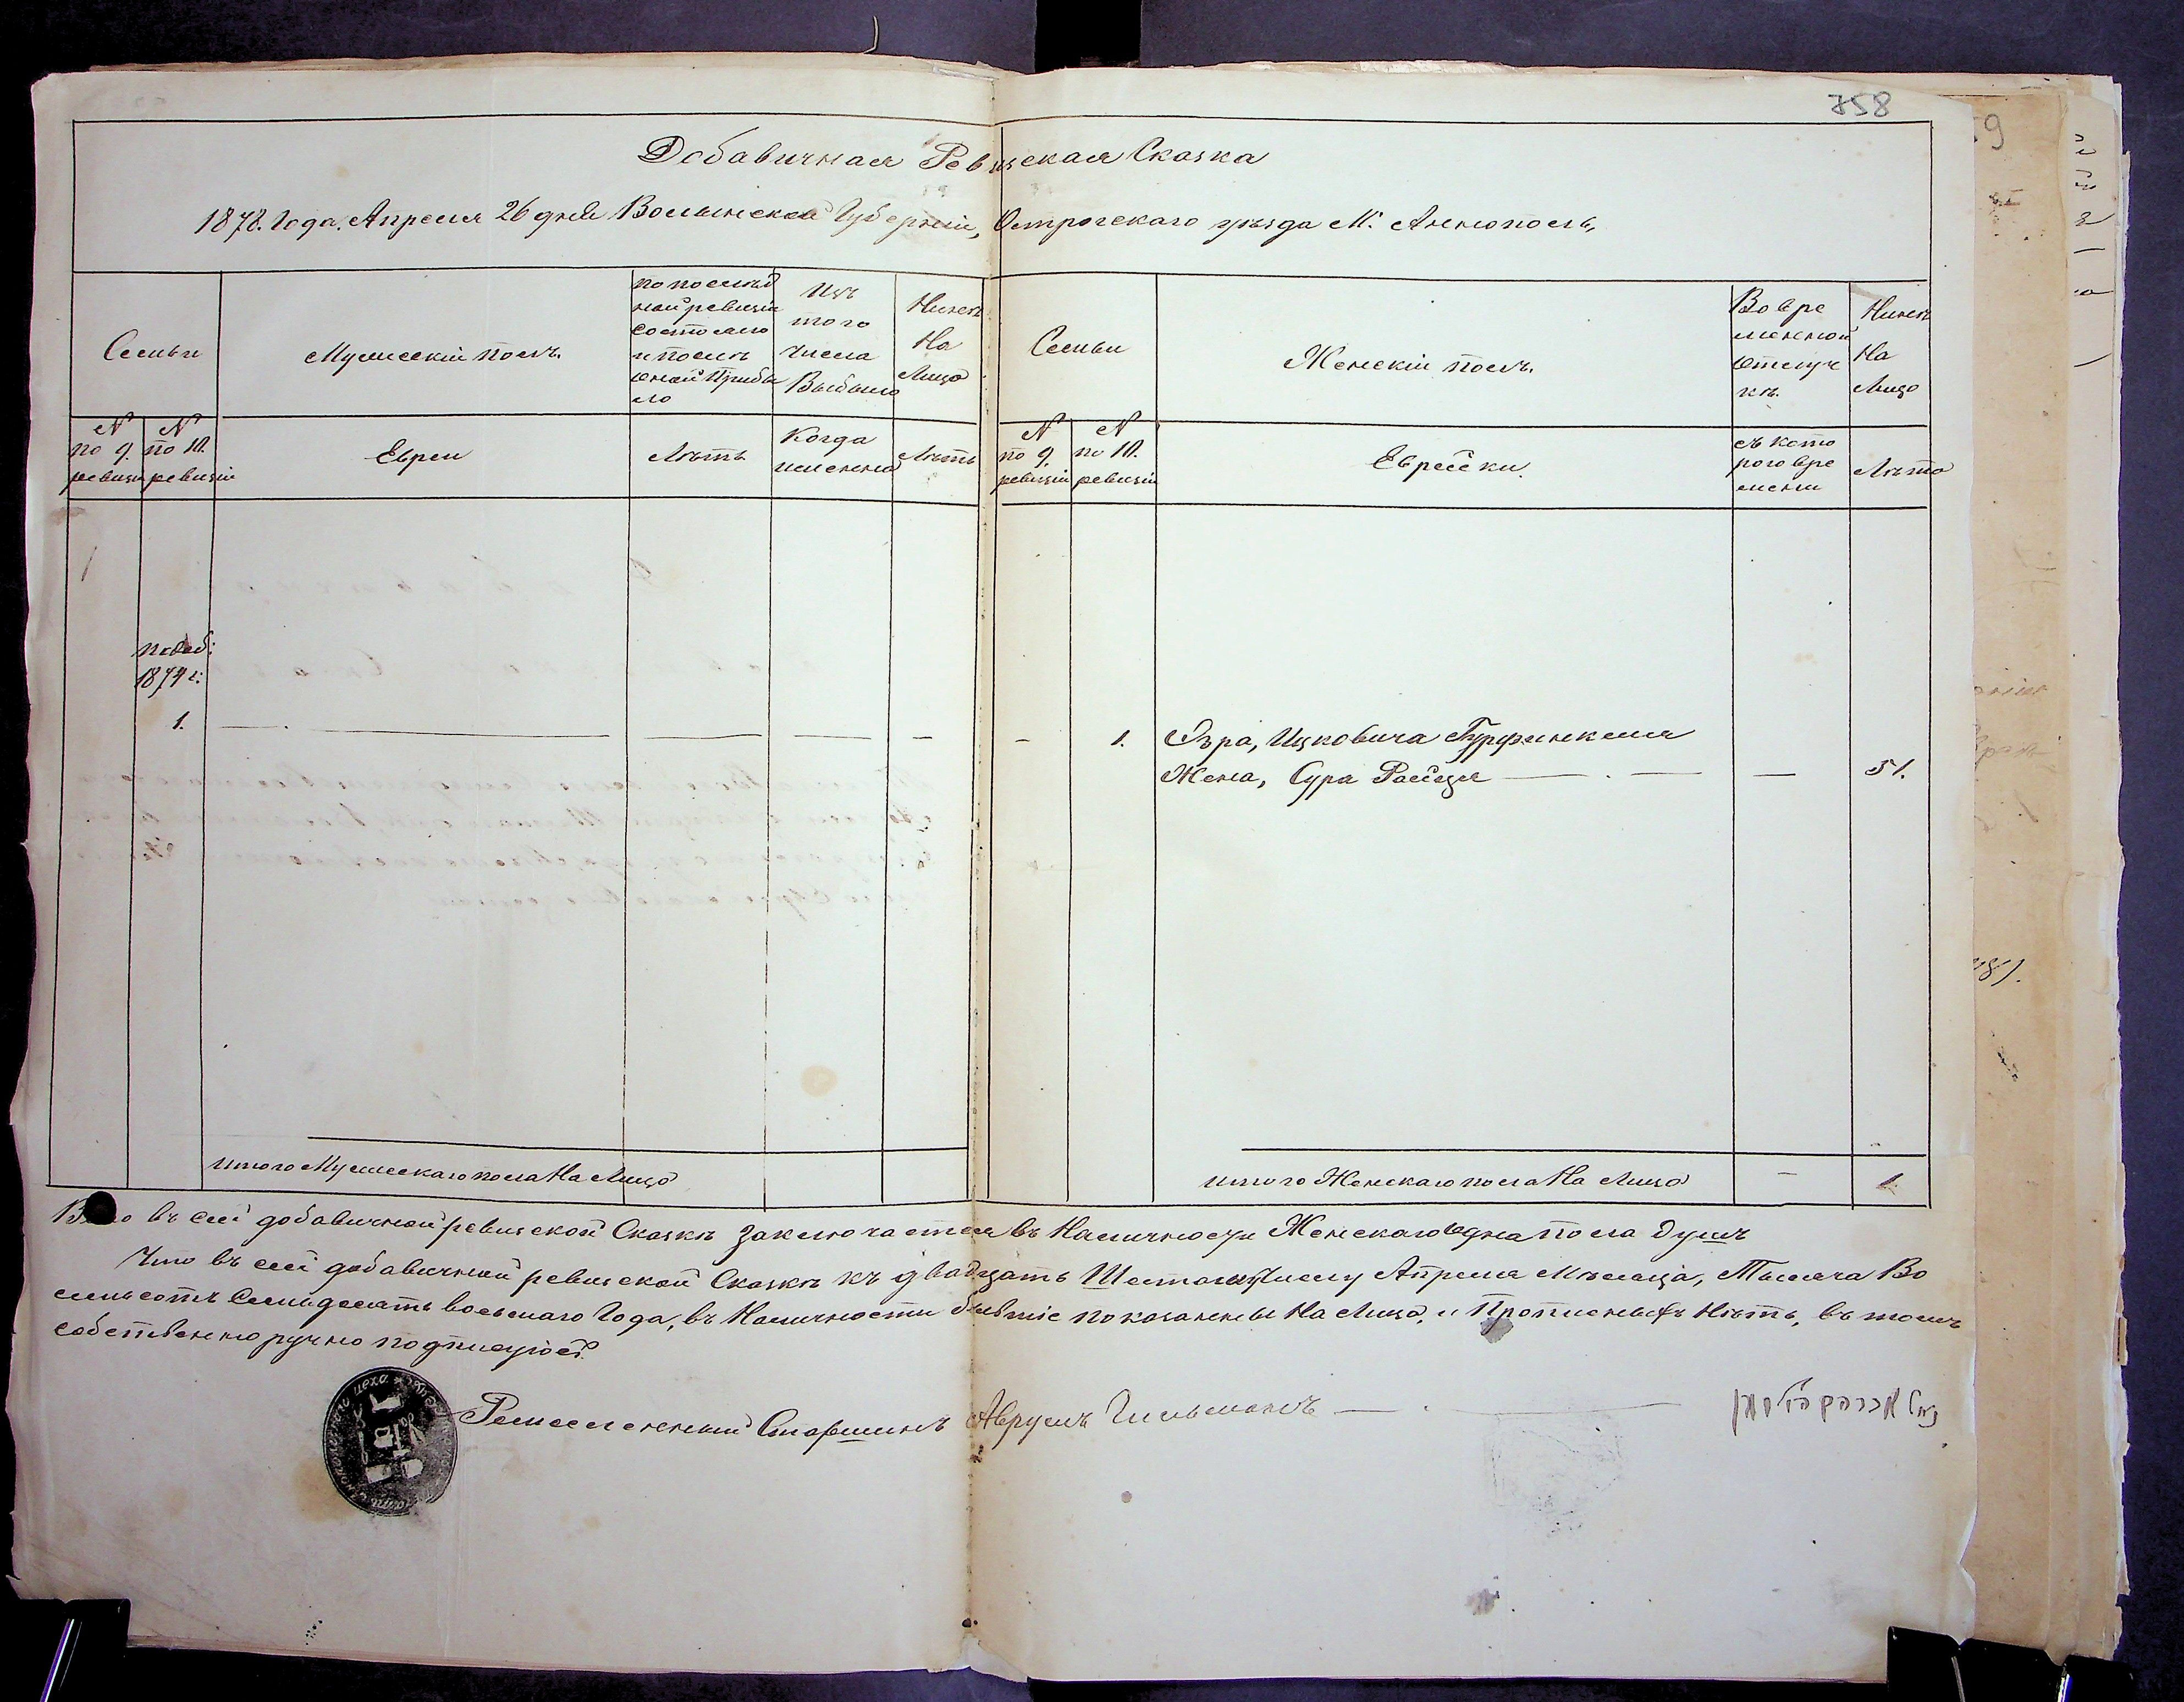 758
Добавичная Ревизская Сказка
1878. Года. Апреля 26 дня Волынской Губерніи, Острогскаго уѣзда М. Аннополь,
Семьи
Мужескій полъ.
по послѣд
ней ревизіи
состояло
и послѣ
оной Прибы
ло
Изъ
того
числа
Выбыло
Нинѣ
На
Лицо
Семьи
Женскій полъ.
Во вре
менной
отлуч
кѣ.
Нинѣ
На
Лицо
№
по 9.
ревизіи
№
по 10.
ревизіи
Евреи
Лѣтъ
Когда
именно
Лѣтъ
№
по 9.
ревизіи
№
по 10.
ревизіи
Еврейки.
съ кото
раго вре
мени
Лѣта
по доб:
1874 г:
1.
1. Ицковича Гурфинкеля
Жена, Сура Рейзя 51.
итого Мужескаго пола На Лицо
итого Женскаго пола На Лицо 1
въ сей добавичной ревизской Сказкѣ заключается въ Наличности Женскаго одна пола душъ
Что въ сей добавичной ревизской Сказкѣ къ двадцать Шестому Числу Апреля Мѣсяца, Тысяча Во
семьсотъ Семьдесятъ восьмаго Года, въ Наличности бывшіе показанны На Лицо, и Прописныхъ Нѣтъ, въ томъ
собственноручно подписуюсь.
Ремесленный Старшинъ Аврумъ Гильманъ